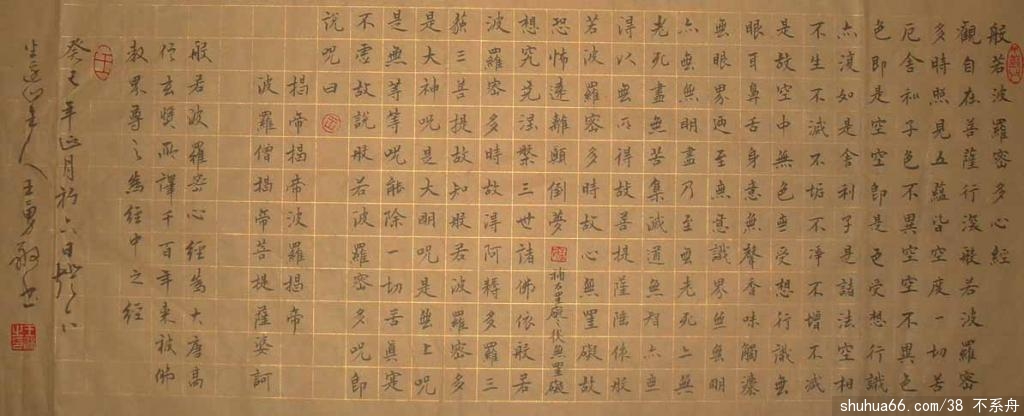 般若波羅密多心經
觀自在菩薩行深般若波羅密
多時照見五蘊皆空度一切苦
厄舍利子色不異空空不異色
色即是空空即是色受想行識
亦復如是舍利子是諸法空相
不生不滅不垢不淨不增不減
是故空中無色無受想行識無
眼耳鼻舌身意無聲香味觸法
無眼界迺至無意識界無無明
亦無無明盡乃至無老死亦無
老死盡無苦集滅道無智亦無
得以無所得故菩提薩陲依般
若波羅密多時故心無罣礙故
恐怖遠離顛倒夢
無罣礙
想究竟涅槃三世諸佛依般若
波羅密多時故得阿耨多羅三
藐三菩提故知般若波羅密多
是大神咒是大明咒是無上咒
是無等等咒能除一切苦真實
不虛故說般若波羅密多咒即
說咒曰
揭帝揭帝波羅揭帝
波羅僧揭帝菩提薩婆訶
般若波羅密心經為大唐高
僧玄奘所譯千百年來被佛
教界尊之為經中之經
癸巳年正月初六日燈下
主人王勇敬書
shuhua66.com/38 不系舟